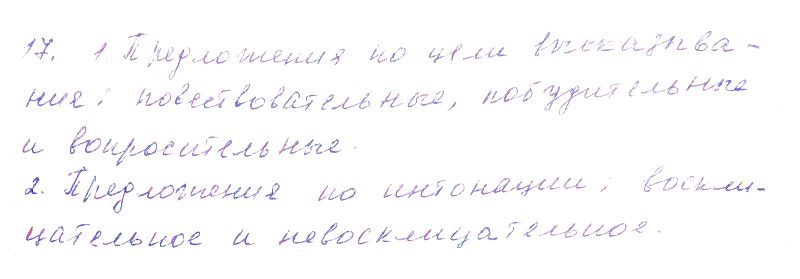 17. 1. Предложения по цели высказыва-
ния: повествовательные, побудительные
и вопросительные.
2. Предложения по интонации: воскли-
цательное и невосклицательное.